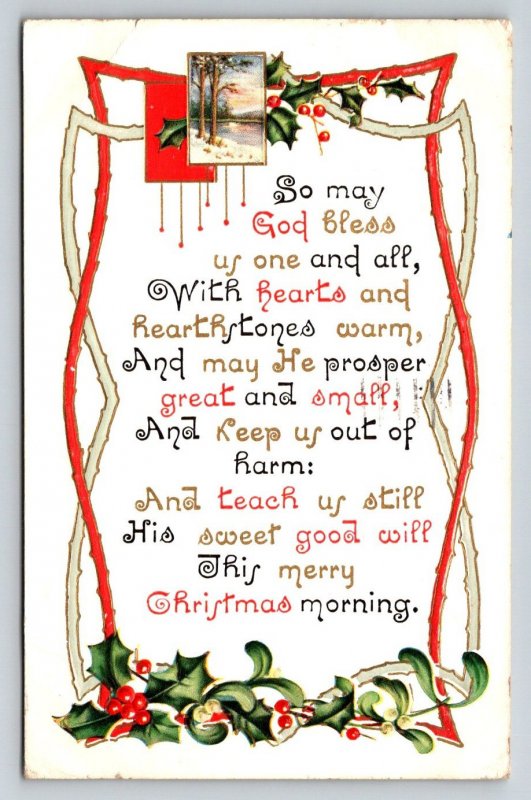 So may
God bless
us one and all,
With hearts and
hearthstones warm,
And may He prosper
great and small,
And keep us out of
harm:
And teach us still
His sweet good will
This merry
Christmas morning.